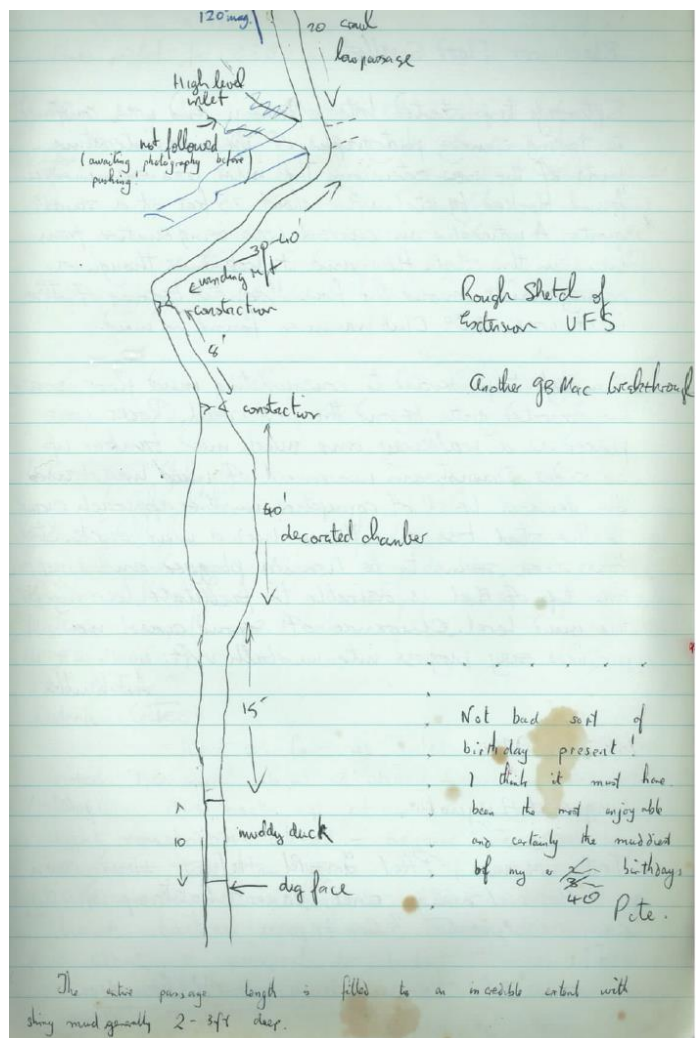 120° mag.
20 crawl
low passage
High level
inlet
not followed
(awaiting photography before
pushing!)
30-40'
winding r/ft
constriction
8'
Rough Sketch of
Extension UFS
Another GB Mac breakthrough
constriction
40'
decorated chamber
15'
Not bad sort of
birthday present!
I think it must have
been the most enjoyable
and certainly the muddiest
of my birthdays
40
Pete.
10
muddy duck
dig face
The entire passage length is filled to an incredible extent with
shiny mud generally 2-3ft deep.